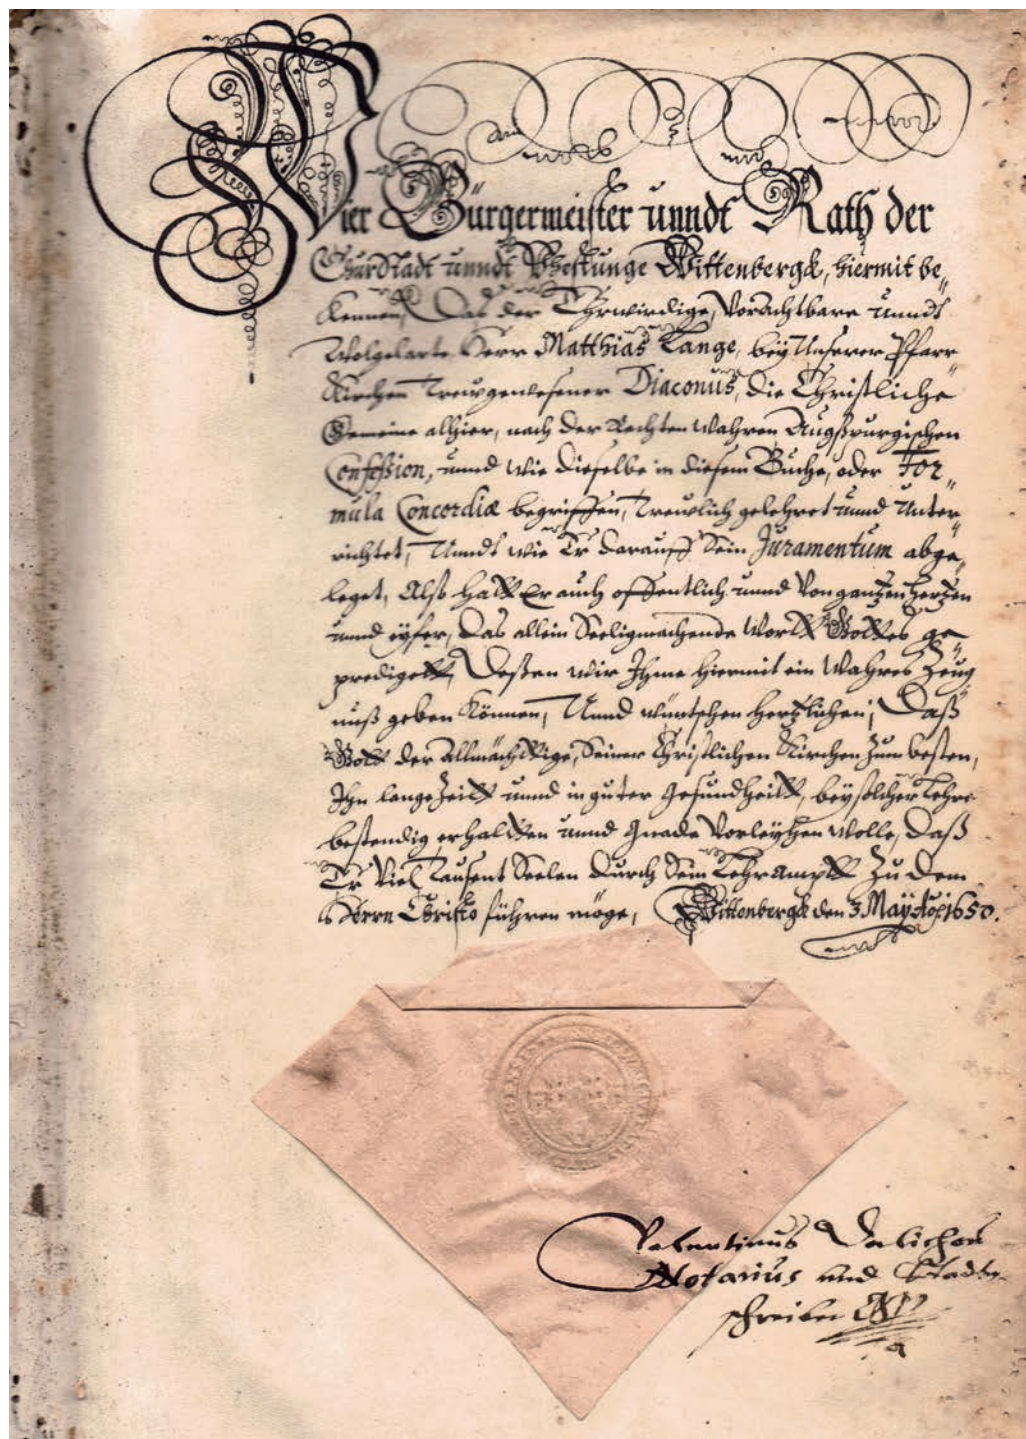 Wier Bürgermeister unndt Rath der
ChurStadt unndt Vhestunge Wittenbergk, hiermit be„
kennen, Das der Ehrwirdige, Vorachtbare unndt
Wolgelarte Herr Matthias Lange, bey Unserer Pfarr„
Kirchen Trewgewesener Diaconus, die Christliche
Gemeine alhier, nach der Rechten Wahren Augspurgischen
Confession, unnd wie dieselbe in diesem Buche, oder For„
mula Concordiæ begriffen, Trewlich gelehret unnd Unter„
richtet, Unndt wie Er darauff Sein Juramentum abge„
leget, Alß hatt Er auch offentlich unnd Von gantzen Hertzen
unnd eyfer, Das allein Seeligmachende Wortt Gottes ge„
predigett, Deßen wir Ihme hiermit ein Wahres Zeug„
nuß geben Können, Unnd wüntschen Hertzlichen, Daß
Gott der Allmächttige, Seiner Christlichen Kirchen Zum besten,
Ihn lange Zeitt unnd in guter Gesundheitt, bey solcher Lehre
bestendig erhaltten unnd Gnade Vorleyhen Wolle, Daß
Er Viel Tausent Seelen Durch Sein Lehrampt Zu Dem
Herrn Christo führen möge, Wittenbergk den 3. Maÿ 1650.
Valentinus
Notarius und Stadt„
schreiber